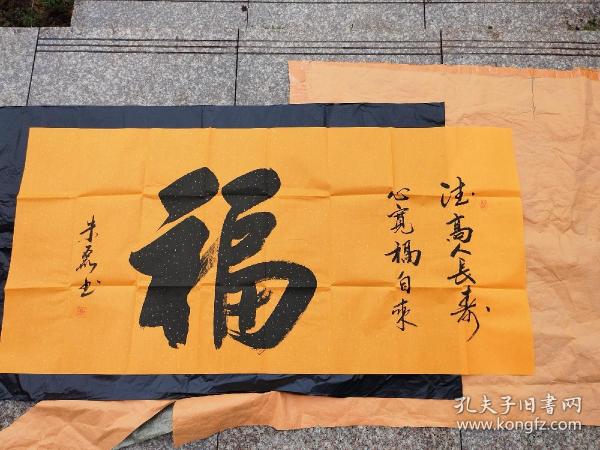 德高人長寿
心寬福自來
福
朱磊书
孔夫子旧书网
www.kongfz.com